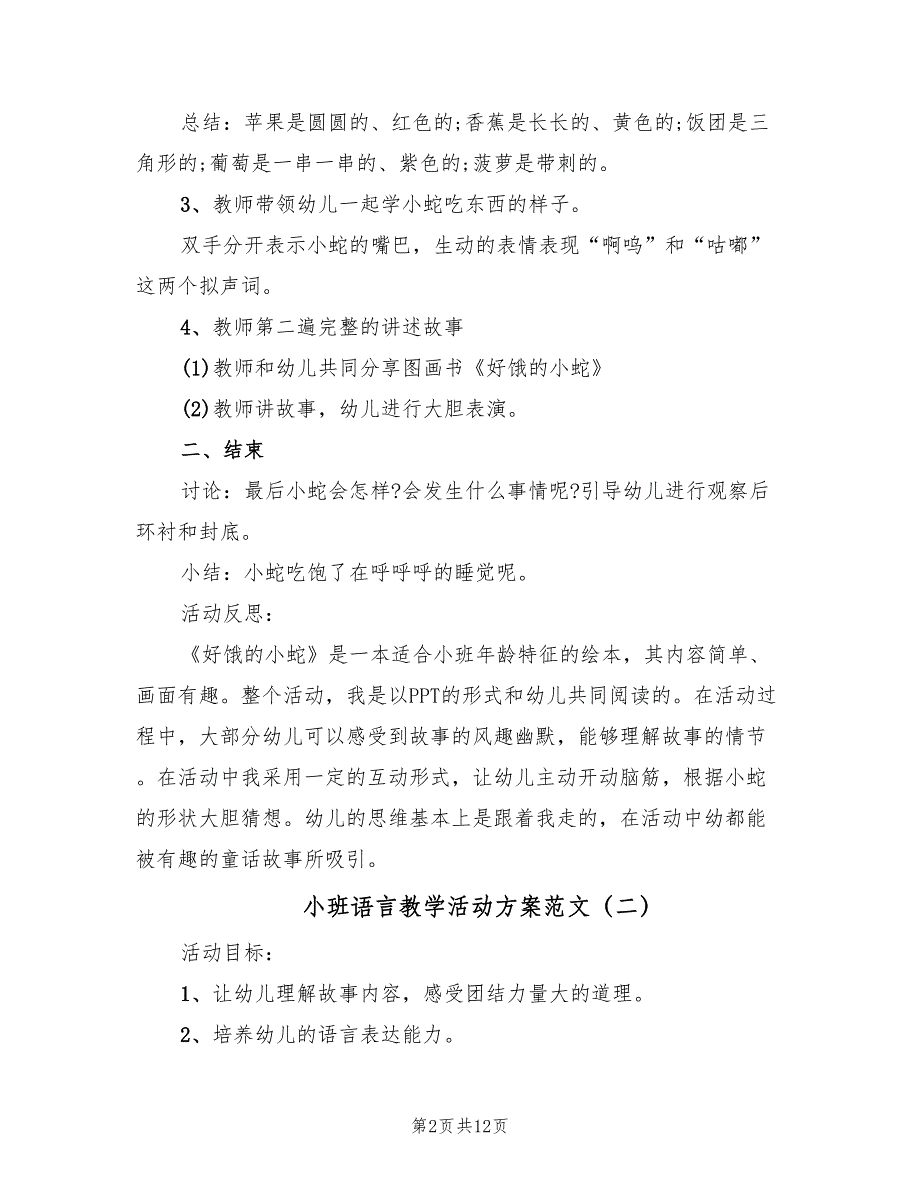 总结：苹果是圆圆的、红色的;香蕉是长长的、黄色的;饭团是三
角形的;葡萄是一串一串的、紫色的;菠萝是带刺的。
3、教师带领幼儿一起学小蛇吃东西的样子。
双手分开表示小蛇的嘴巴，生动的表情表现“啊呜”和“咕嘟”
这两个拟声词。
4、教师第二遍完整的讲述故事
(1)教师和幼儿共同分享图画书《好饿的小蛇》
(2)教师讲故事，幼儿进行大胆表演。
二、结束
讨论：最后小蛇会怎样?会发生什么事情呢?引导幼儿进行观察后
环衬和封底。
小结：小蛇吃饱了在呼呼呼的睡觉呢。
活动反思：
《好饿的小蛇》是一本适合小班年龄特征的绘本，其内容简单、
画面有趣。整个活动，我是以PPT的形式和幼儿共同阅读的。在活动过
程中，大部分幼儿可以感受到故事的风趣幽默，能够理解故事的情节
。在活动中我采用一定的互动形式，让幼儿主动开动脑筋，根据小蛇
的形状大胆猜想。幼儿的思维基本上是跟着我走的，在活动中幼都能
被有趣的童话故事所吸引。
小班语言教学活动方案范文（二）
活动目标：
1、让幼儿理解故事内容，感受团结力量大的道理。
2、培养幼儿的语言表达能力。
第2页共12页